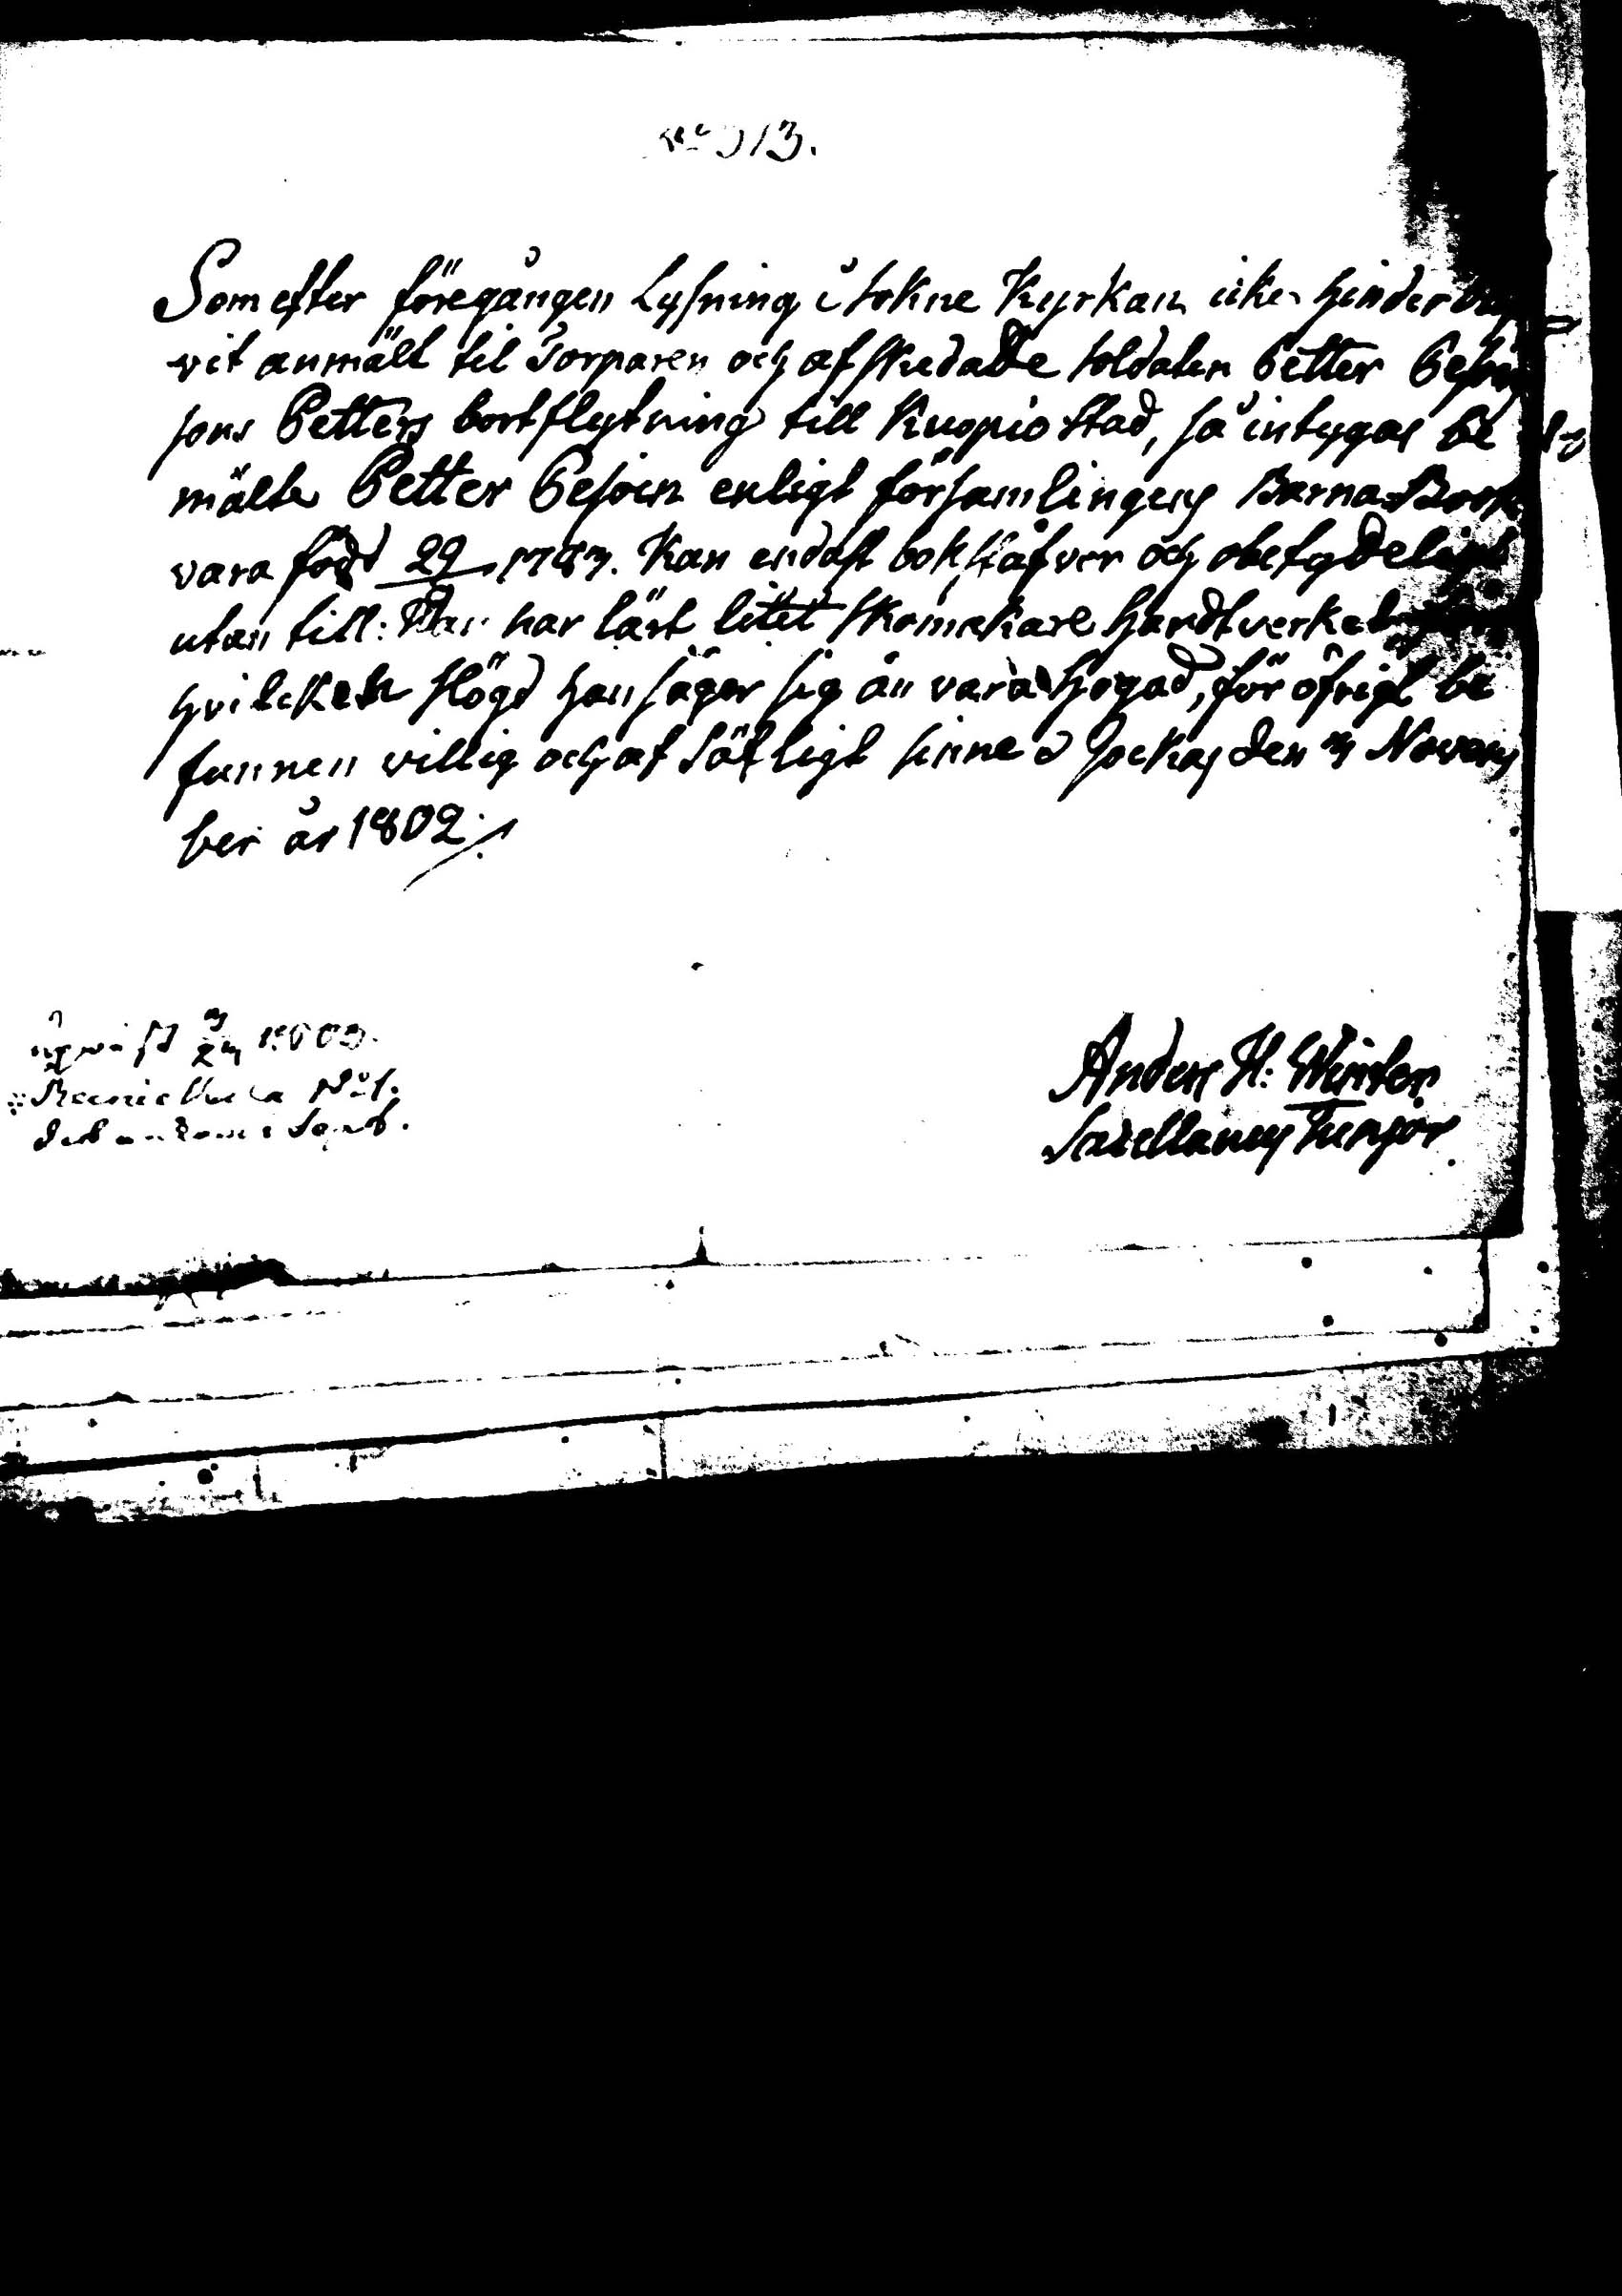 N:o 313.
Som efter föregången Lysning i sokne Kyrkan icke hinder
vit anmält til Torparen och afskedade soldaten Petter
sons Petters bortflytning till Kuopio Stad, så intygas be
mälte Petter Pesoin enligt församlingens Barna-Bok
vara född 29 Kan endast bokstäfver och obetydeligt
utan till: Han har lärt litet skomakare handtverket
hvilcken slögd han säger sig än vara hogad, för öfrigt be
funnen villig och af säfligt sinne Jockas den Novem
ber år 1802
upvist 1803.
Anders H: Winter
Sacellanus